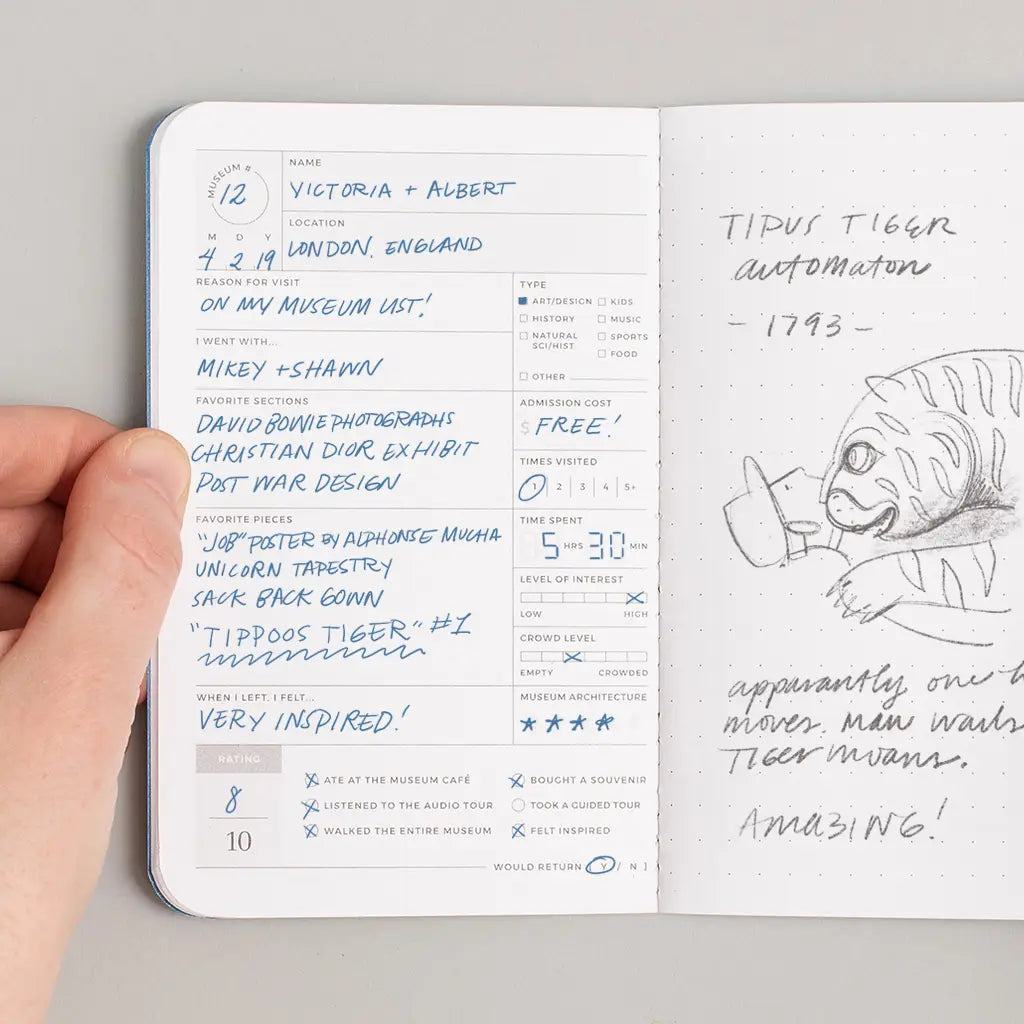 MUSEUM #
12
M D Y
4 2 19
NAME
VICTORIA + ALBERT
LOCATION
LONDON, ENGLAND
REASON FOR VISIT
ON MY MUSEUM LIST!
I WENT WITH...
MIKEY + SHAWN
FAVORITE SECTIONS
DAVID BOWIE PHOTOGRAPHS
CHRISTIAN DIOR EXHIBIT
POST WAR DESIGN
FAVORITE PIECES
"JOB" POSTER BY ALPHONSE MUCHA
UNICORN TAPESTRY
SACK BACK GOWN
"TIPPOOS TIGER" #1
WHEN I LEFT, I FELT...
VERY INSPIRED!
TYPE
ART/DESIGN KIDS
HISTORY MUSIC
NATURAL SCI/HIST SPORTS
FOOD
OTHER
ADMISSION COST
$ FREE!
TIMES VISITED
1 2 3 4 5+
TIME SPENT
5 HRS 30 MIN
LEVEL OF INTEREST
LOW HIGH
CROWD LEVEL
EMPTY CROWDED
MUSEUM ARCHITECTURE
RATING
8
10
ATE AT THE MUSEUM CAFÉ BOUGHT A SOUVENIR
LISTENED TO THE AUDIO TOUR TOOK A GUIDED TOUR
WALKED THE ENTIRE MUSEUM FELT INSPIRED
WOULD RETURN [ Y / N ]
TIPUS TIGER
automaton
- 1793 -
apparantly one
moves. Man wails
Tiger moans.
AMAZING!